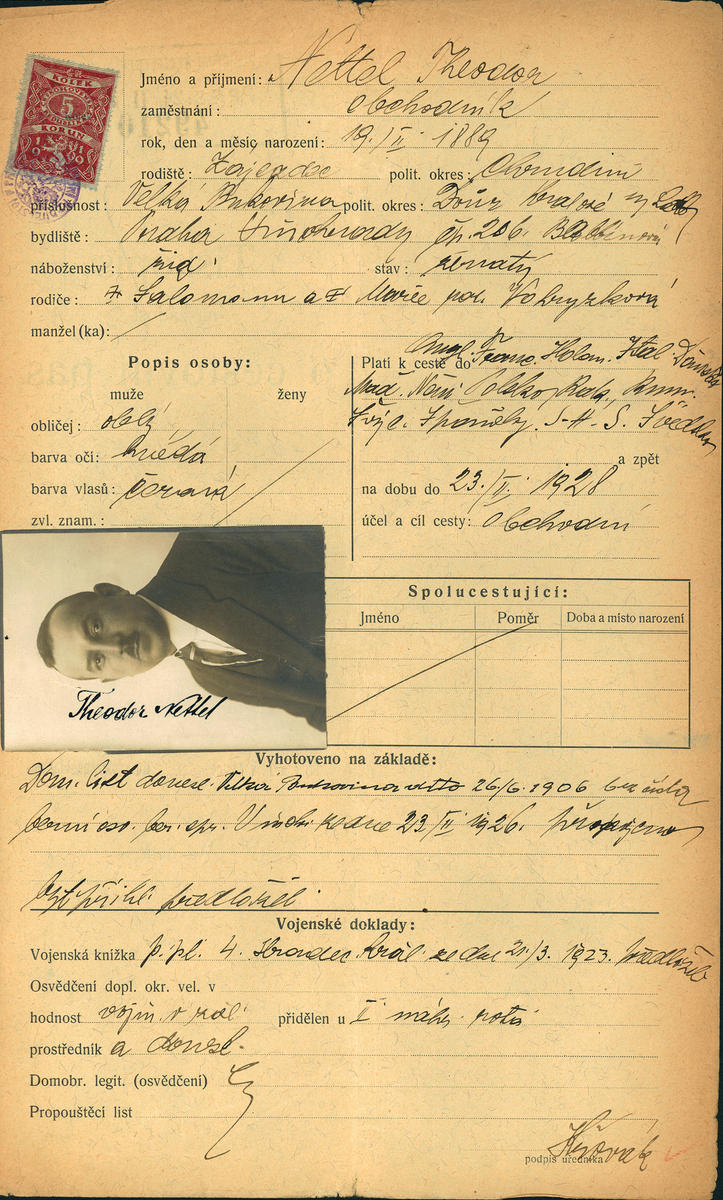 KOLEK
5
KORUN
1919
Jméno a příjmení: Nettel Theodor
zaměstnání: obchodník
rok, den a měsíc narození: 19./II. 1889
rodiště: Zaječec polit. okres: Chrudim
příslušnost: Velká Bukovina polit. okres: Dvůr Králové n/ Lab.
bydliště: Praha Vinohrady čp. 206.
náboženství: žid. stav: ženatý
rodiče: † Salomoun a † Marie roz. Vobryzková
manžel(ka):
Popis osoby:
muže ženy
obličej: oblý
barva očí: hnědá
barva vlasů: černá
zvl. znam.:
Platí k cestě do Angl. Franc. Holan. Ital. Dánska
Maď. Něm. Polsko, Rak., Rum.
Švýc. Španěly. S.-H.-S. Švédsko
a zpět
na dobu do 23./II. 1928
účel a cíl cesty: obchodní
Theodor Nettel
Spolucestující:
Jméno Poměr Doba a místo narození
Vyhotoveno na základě:
Dom. list Velká Bukovina 26./6. 1906 bez čísla
ber. spr. ze dne 23/II 1926.
předložil.
Vojenské doklady:
Vojenská knížka p. pl. 4. Hradec Král. ze dne 21./3. 1923. předložil
Osvědčení dopl. okr. vel. v
hodnost vojín v zál. přidělen u I. náhr. rota
prostředník a
Domobr. legit. (osvědčení)
Propouštěcí list
podpis úředníka